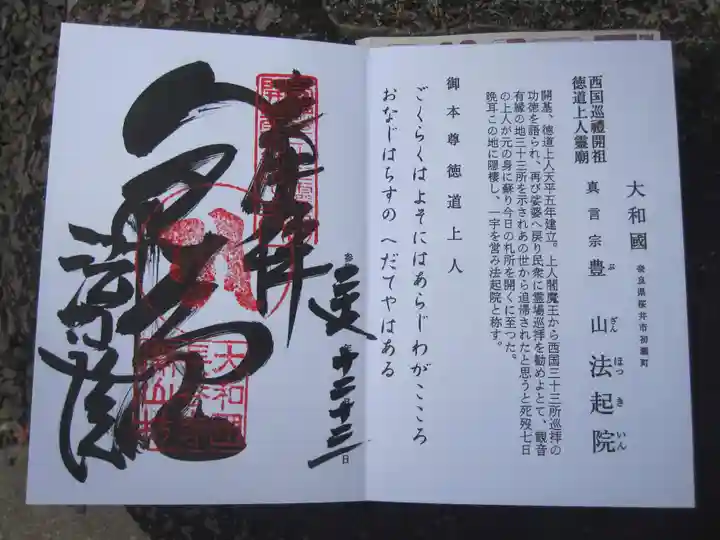 大和國 奈良県桜井市初瀬町
真言宗豊山法起院
ぶ ざん ほっ き いん
西国巡禮開祖
徳道上人霊廟
開基、徳道上人天平五年建立。上人閻魔王から西国三十三所巡拝の
功徳を語られ、再び娑婆へ戻り民衆に霊場巡拝を勧めよとて、観音
有縁の地三十三所を示されあの世から追帰されたと思うと死歿七日
の上人が元の身に蘇り今日の札所を開くに至つた。
晩年この地に隠棲し、一宇を営み法起院と称す。
御本尊徳道上人
ごくらくはよそにはあらじわがこころ
おなじはちすの へだてやはある
奉拝
十二 十三 日
法起院